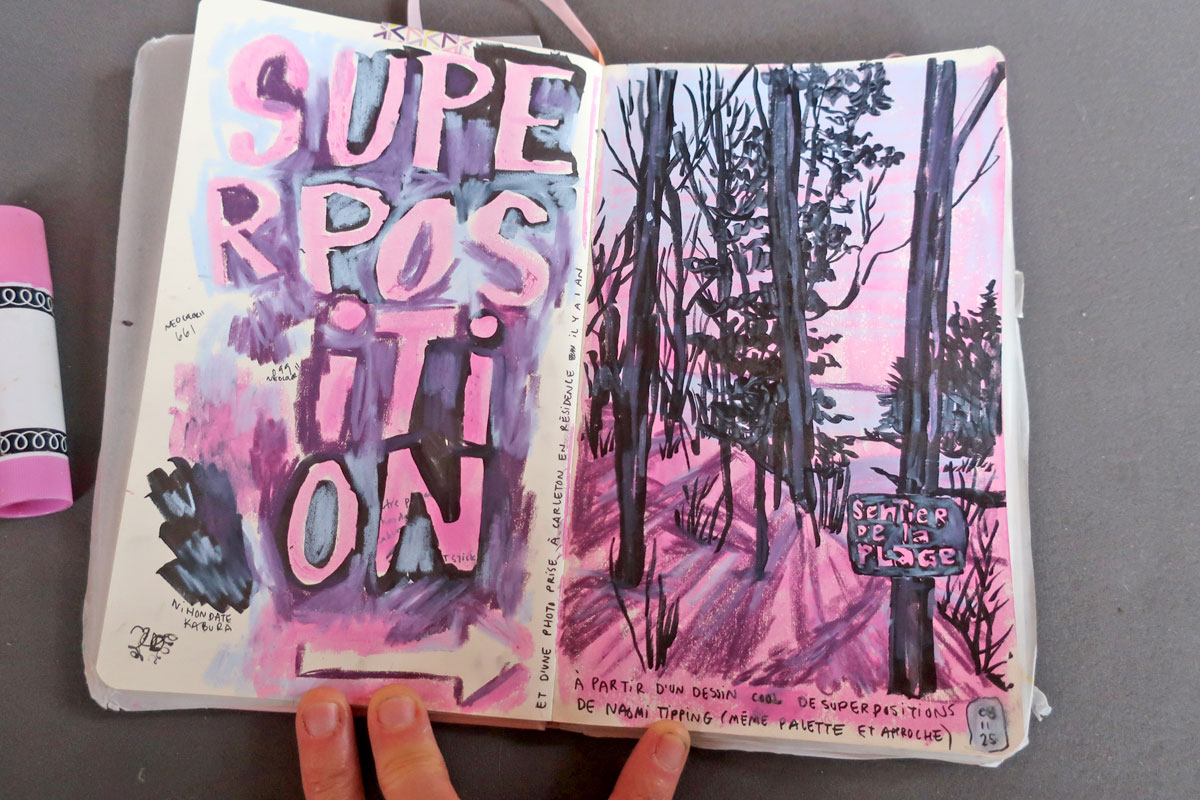 SUPE
RPOS
iTi
ON
NEOCOLOR II
661
099
NEOCOLOR II
T STICK
NIHONDATE
KABURA
ET D'UNE PHOTO PRISE À CARLETON EN RÉSIDENCE IL Y A 1 AN
SENTiER
DE la
PLAGE
À PARTIR D'UN DESSIN COOL DE SUPERPOSITIONS
DE NAOMI TIPPING (MÊME PALETTE ET APPROCHE)
11
25